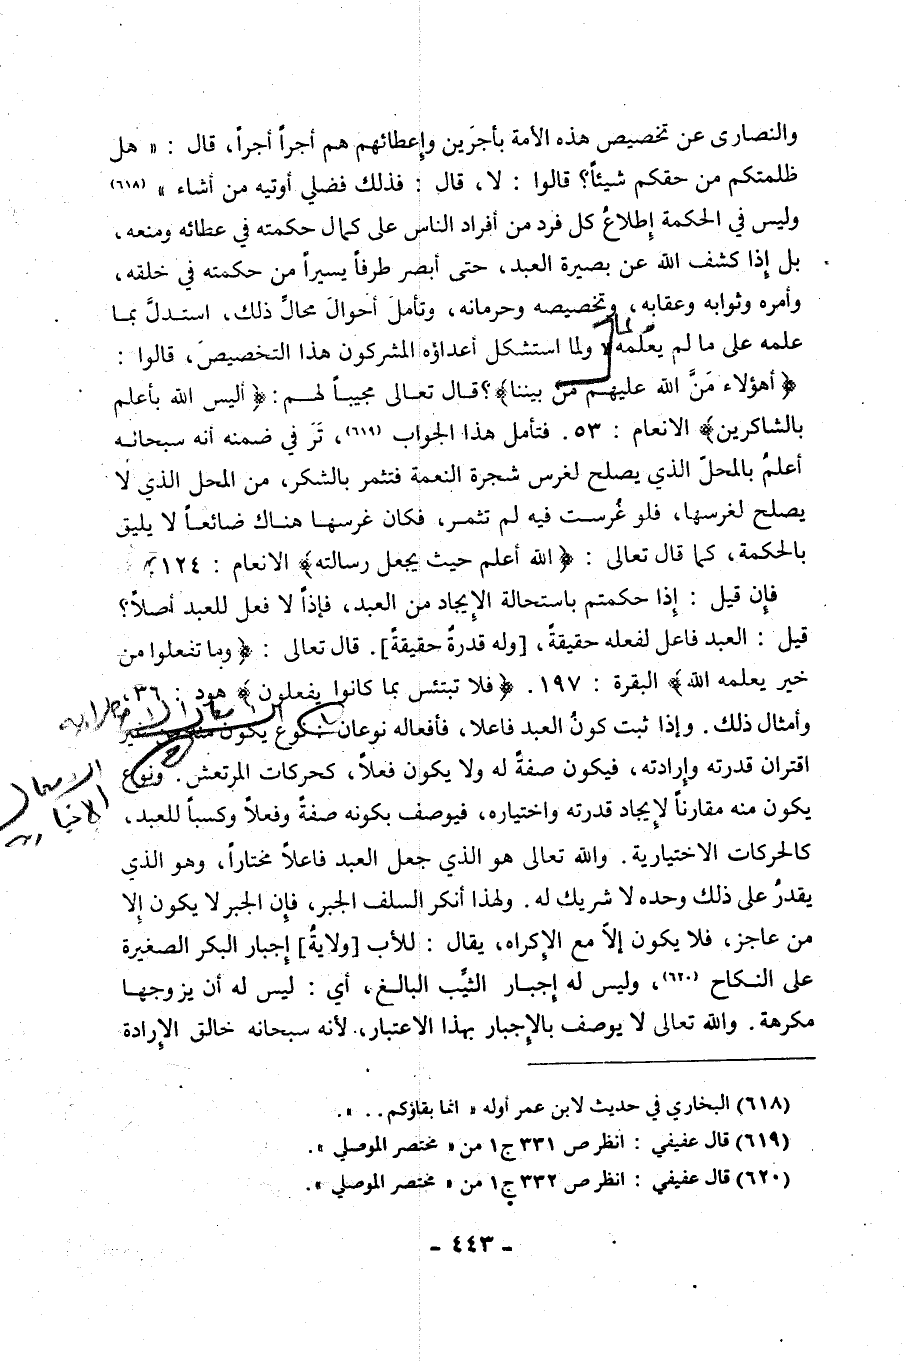 والنصارى عن تخصيص هذه الأمة بأجرَين وإعطائهم هم أجراً أجراً، قال : « هل
ظلمتكم من حقكم شيئاً؟ قالوا : لا، قال : فذلك فضلي أوتيه من أشاء » (٦١٨)
وليس في الحكمة إطلاعُ كل فرد من أفراد الناس على كمال حكمته في عطائه ومنعه،
بل إذا كشف الله عن بصيرة العبد، حتى أبصر طرفاً يسيراً من حكمته في خلقه،
وأمره وثوابه وعقابه، وتخصيصه وحرمانه، وتأملَ أحوالَ محالِّ ذلك، استدلَّ بما
علمه على ما لم يعلمه، ولما استشكل أعداؤه المشركون هذا التخصيصَ، قالوا :
﴿ أهؤلاء مَنَّ الله عليهم من بيننا﴾؟ قال تعالى مجيباً لهم: ﴿ أليس الله بأعلم
بالشاكرين﴾ الانعام : ٥٣. فتأمل هذا الجواب (٦١٩)، تَرَ في ضمنه أنه سبحانه
أعلمُ بالمحلّ الذي يصلح لغرس شجرة النعمة فتثمر بالشكر، من المحل الذي لا
يصلح لغرسها، فلو غُرست فيه لم تثمر، فكان غرسها هناك ضائعاً لا يليق
بالحكمة، كما قال تعالى : ﴿ الله أعلم حيث يجعل رسالته﴾ الانعام : ١٢٤
فإن قيل : إذا حكمتم باستحالة الإيجاد من العبد، فإذاً لا فعل للعبد أصلاً؟
قيل : العبد فاعل لفعله حقيقةً، [وله قدرةٌ حقيقةً]. قال تعالى : ﴿ وما تفعلوا من
خير يعلمه الله﴾ البقرة : ١٩٧. ﴿ فلا تبتئس بما كانوا يفعلون﴾ هود : ٣٦،
وأمثال ذلك. وإذا ثبت كونُ العبد فاعلا، فأفعاله نوعان : نوع يكون منه من غير
اقتران قدرته وإرادته، فيكون صفةً له ولا يكون فعلاً، كحركات المرتعش. ونوع
يكون منه مقارناً لإيجاد قدرته واختياره، فيوصف بكونه صفةً وفعلاً وكسباً للعبد،
كالحركات الاختيارية. والله تعالى هو الذي جعل العبد فاعلاً مختاراً، وهو الذي
يقدرُ على ذلك وحده لا شريك له. ولهذا أنكر السلف الجبر، فإن الجبر لا يكون إلا
من عاجز، فلا يكون إلاّ مع الإكراه، يقال : للأب [ولايةُ] إجبار البكر الصغيرة
على النكاح (٦٢٠)، وليس له إجبار الثيِّب البالغ، أي : ليس له أن يزوجها
مكرهة. والله تعالى لا يوصف بالإجبار بهذا الاعتبار، لأنه سبحانه خالق الإرادة
(٦١٨) البخاري في حديث لابن عمر أوله « انما بقاؤكم . . ».
(٦١٩) قال عفيفي : انظر ص ٣٣١ ج١ من « مختصر الموصلي ».
(٦٢٠) قال عفيفي : انظر ص ٣٣٢ ج١ من « مختصر الموصلي ».
- ٤٤٣ -